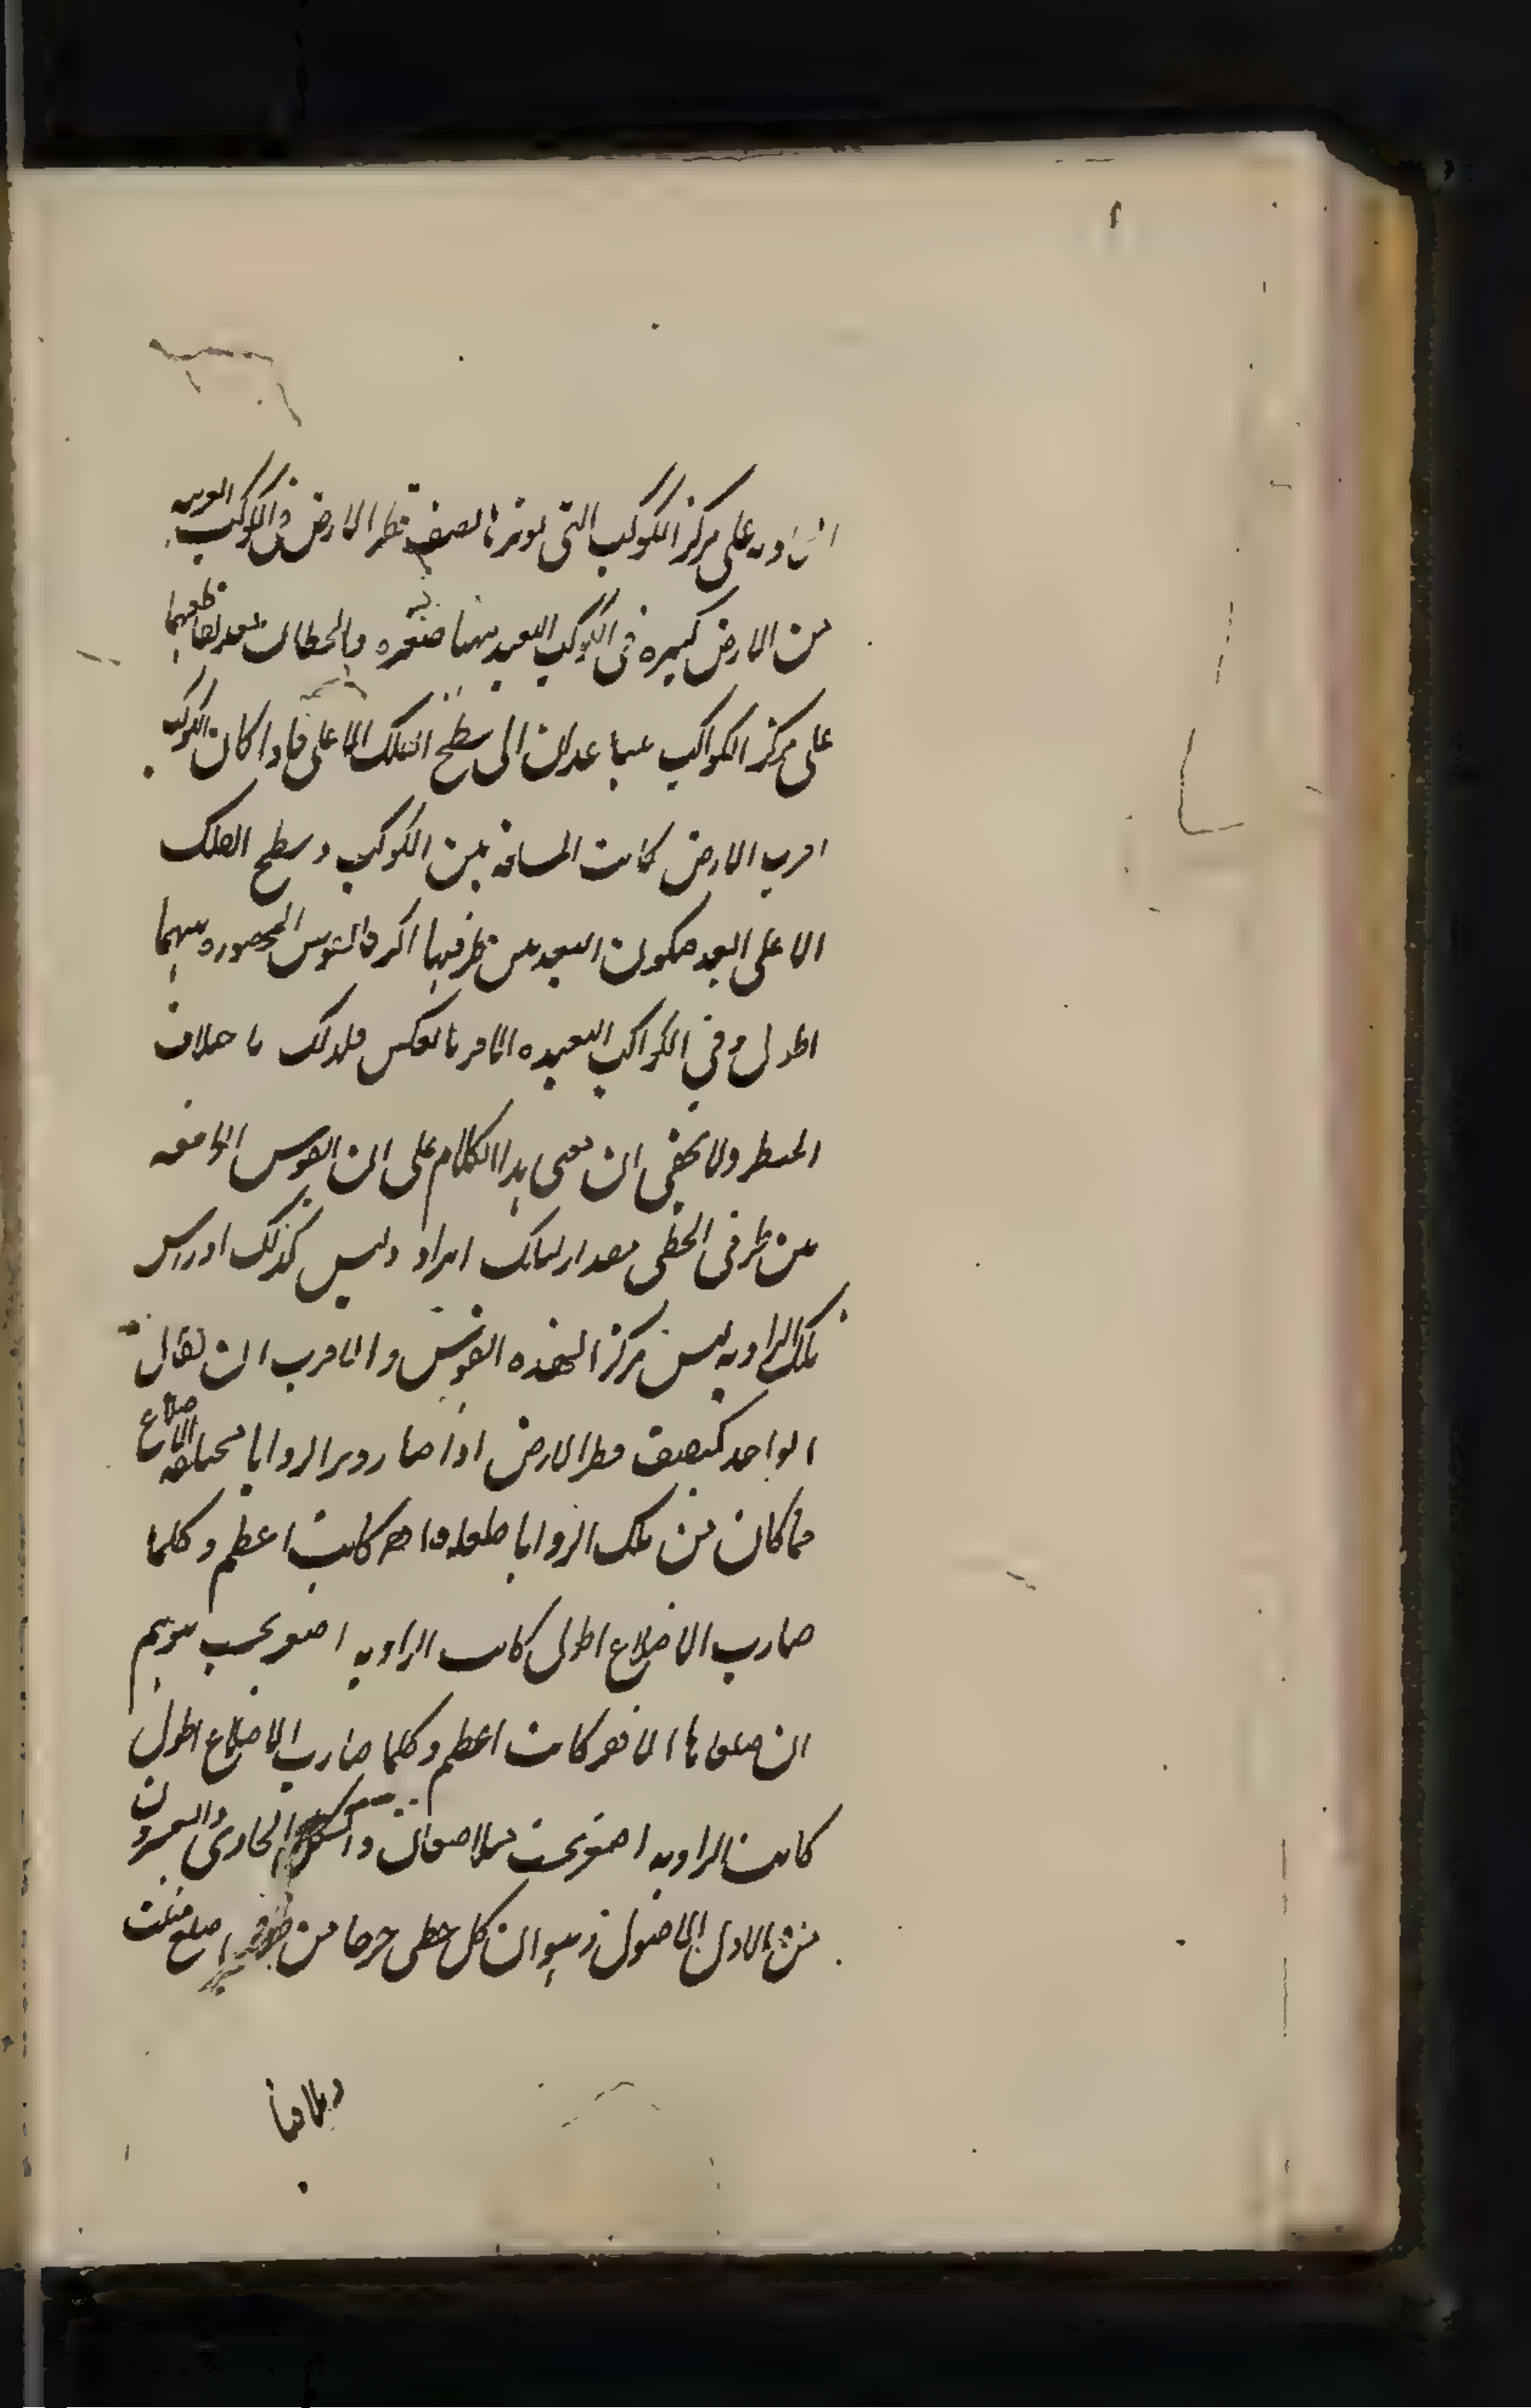 الزاويه على مركز الكوكب التى يوترها نصف قطر الارض فى الكوكب القريبه
من الارض كبيره فى الكوكب البعيد منها صغيره والخطان بعد تقاطعهما
على مركز الكواكب يتباعدان الى سطح الفلك الاعلى فاذا كان الكوكب
اقرب الارض كانت المسافة بين الكوكب و سطح الفلك
الاعلى ابعد فيكون البعد بين طرفيهما اكثر والقوس المحصوره بينهما
اطول وفى الكواكب البعيده الامر بالعكس فلذلك اختلاف
المنظر ولا يخفى ان مبنى هذا الكلام على ان القوس الواقعه
بين طرفى الخطى مقدار لتلك الزاويه وليس كذلك اذ راس
تلك الزاويه ليس مركزا لهذه القوس والاقرب ان يقال
الواحد كنصف قطر الارض اذا صار وترا لزوايا مختلفه الاضلاع
فما كان من تلك الزوايا كانت اعظم وكلما
صارت الاضلاع اطول كانت الزاويه اصغر بحسب
ان الاقصر كانت اعظم وكلما صارت الاضلاع اطول
كانت الزاويه اصغر بحيث الحادى والعشرون
من الاول الاصول وهو ان كل خطى خرجا من طرفى ضلع مثلث
وتلاقيا